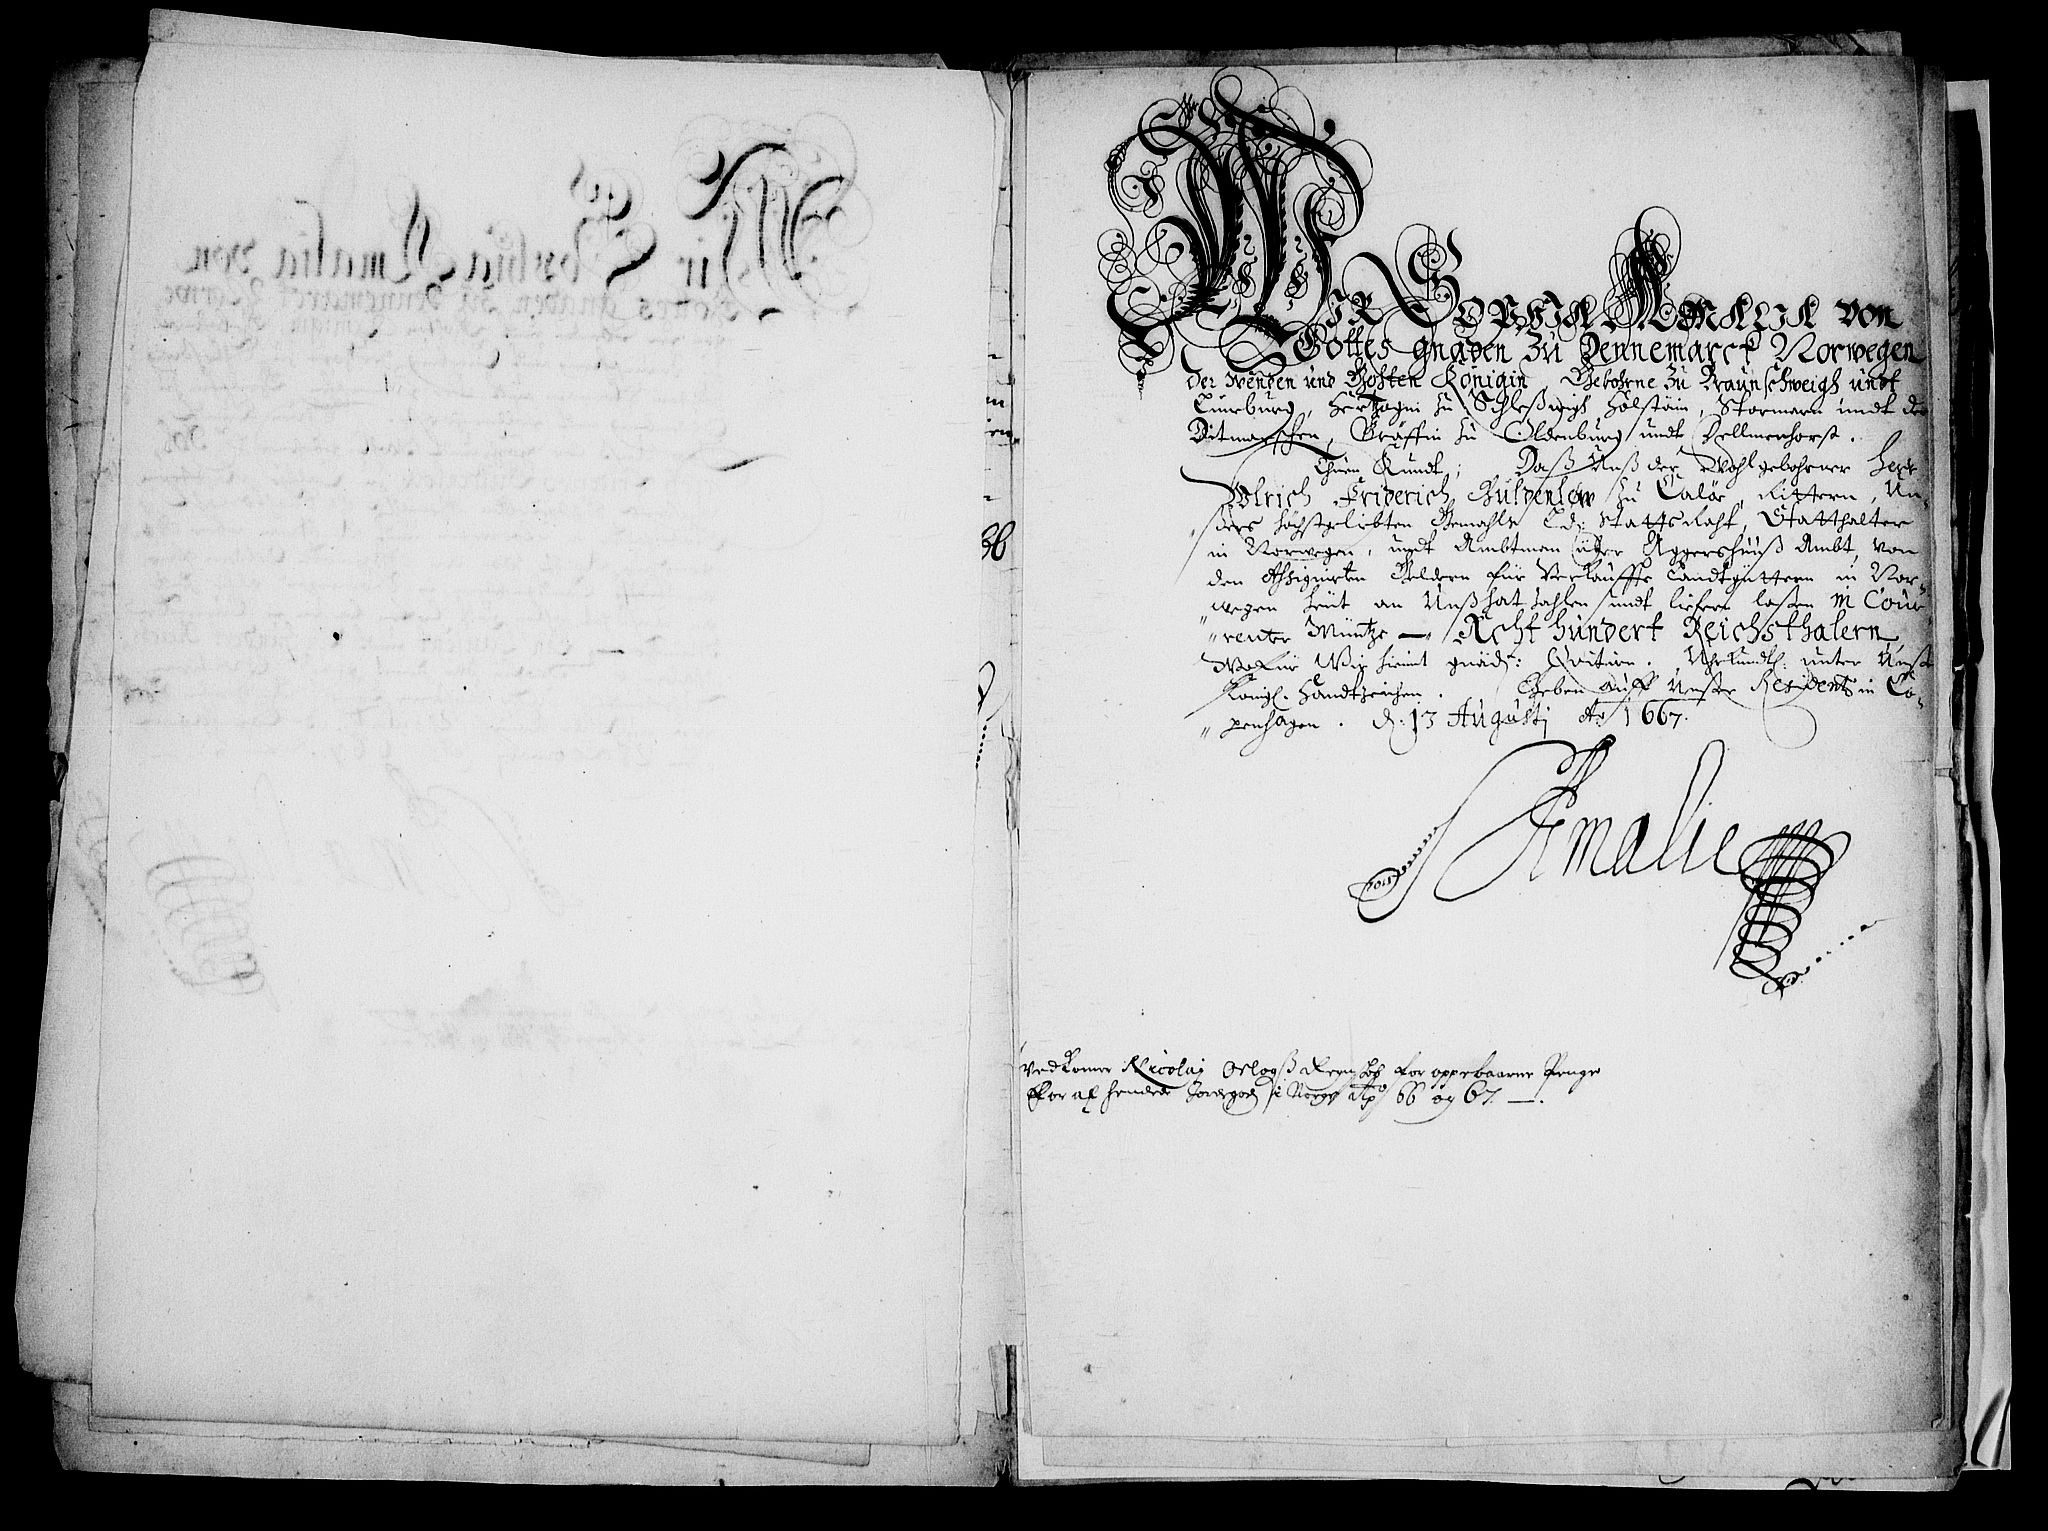 WIR SOPHIA AMALIA von
Gottes gnaden Zu Dennemarck Norwegen
der Wenden und Gohten Königin, Gebohrne zu Braunschweigh undt
Lünburg, Hertzogin zu Schleßwigh Holstein, Stormarn undt der
Ditmarschen, Gräffin zu Oldenburg undt Dellmenhorst.
Thuen Kundt; Daß Unß der Wohlgebohrner Herr
Vlrich Friderich Güldenlöw zu Calöe, Rittern, Un-
sers höchstgeliebten Gemahls Ed: Statts Raht, Statthalter
in Norwegen, undt Ambtman über Aggershuuß Ambt, von
den Assignirten Geldern für Verkauffte Landtgüttern in Nor-
"wegen heut an Unß hat zahlen undt liefern laßen in Cour
"renter Müntze — Acht hundert Reichsthalern
Wofür Wir hiemit gnäd: Qvitiren. Uhrkundl: unter Unß
Königl. Handtzeichen. Geben auff Unßer Residentz in Co-
"penhagen. d: 13 Augusti Ao 1667.
Sophia Amalie
Vedkomer Nicolaj Oelogß Regnsk for oppebaarne Penge
for af hendede Jordegods i Norge Ao 66 og 67. —.